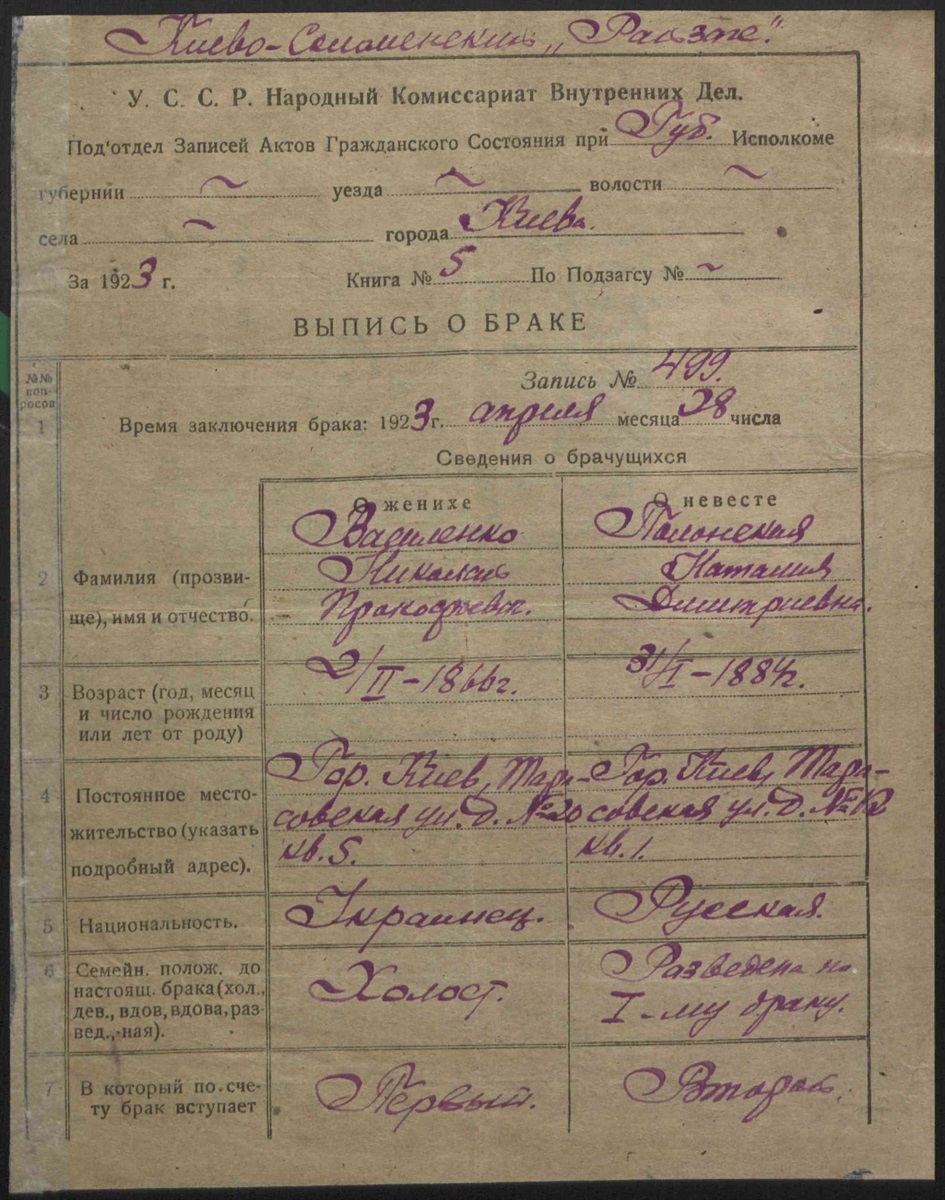 Киево-Соломенский „Райзаг".
У. С. С. Р. Народный Комиссариат Внутренних Дел.
Под'отдел Записей Актов Гражданского Состояния при Губ. Исполкоме
губернии ~ уезда ~ волости ~
села ~ города Киева.
За 1923 г. Книга № 5 По Подзагсу № ~
ВЫПИСЬ О БРАКЕ
№№ воп- росов
Запись № 499.
1 Время заключения брака: 1923 г. апреля месяца 28 числа
Сведения о брачущихся
О женихе О невесте
Василенко Полонская
2 Фамилия (прозви- Николай Наталия
ще), имя и отчество. Прокофьев. Димитриевна.
3 Возраст (год, месяц 2/II – 1866 г. 31/I – 1884 г.
и число рождения
или лет от роду)
4 Постоянное место- Гор. Киев, Тара- Гор. Киев, Тара-
жительство (указать совская ул. д. № 20 совская ул. д. № 12
подробный адрес). кв. 5. кв. 1.
5 Национальность. Украинец. Русская.
6 Семейн. полож. до Разведена по
настоящ. брака (хол., Холост. I-му браку.
дев., вдов, вдова, раз
вед., -ная).
7 В который по сче- Первый. Второй.
ту брак вступает